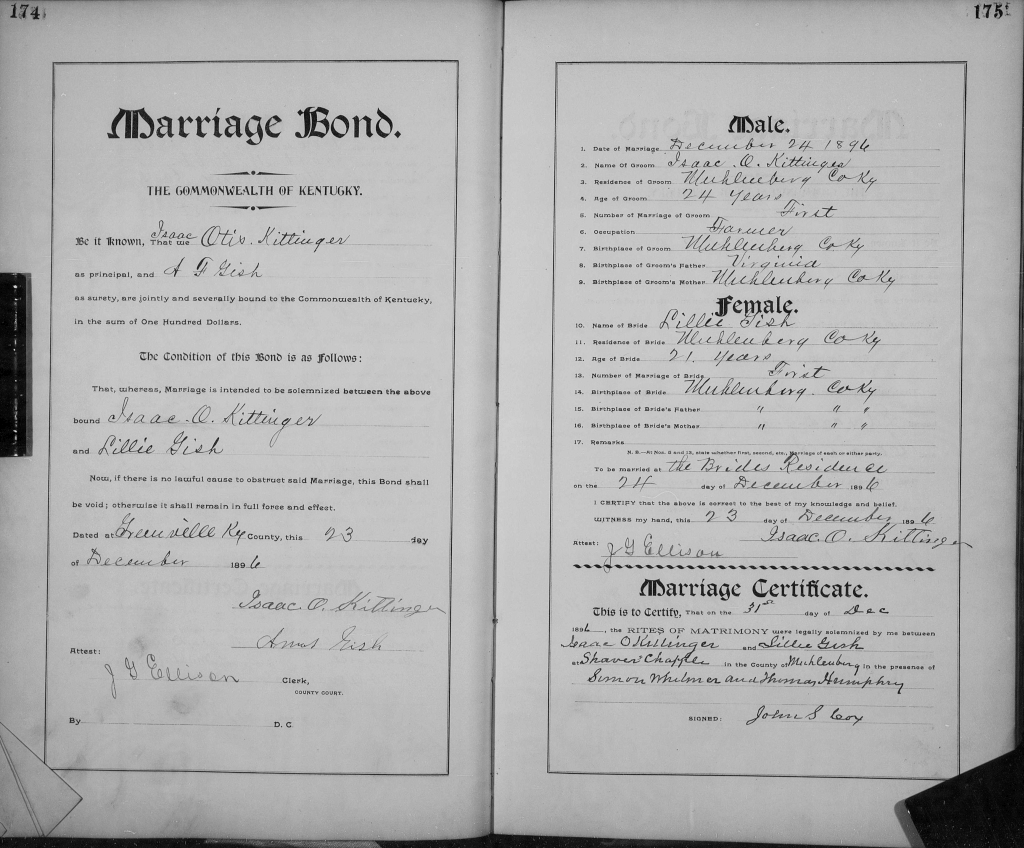 174
Marriage Bond.
THE COMMONWEALTH OF KENTUCKY.
Be it known, That we Isaac Otis. Kittinger
as principal, and A F Gish
as surety, are jointly and severally bound to the Commonwealth of Kentucky,
in the sum of One Hundred Dollars.
The Condition of this Bond is as Follows:
That, whereas, Marriage is intended to be solemnized between the above
bound Isaac. O. Kittinger
and Lillie Gish
Now, if there is no lawful cause to obstruct said Marriage, this Bond shall
be void; otherwise it shall remain in full force and effect.
Dated at Greenville Ky County, this 23 day
of December 1896
Isaac. O. Kittinger
Gish
Attest:
J G Ellison Clerk,
COUNTY COURT.
By D. C.
175
Male.
1. Date of Marriage December 24 1896
2. Name Of Groom Isaac. O. Kittinger
3. Residence of Groom Muhlenberg Co Ky
4. Age of Groom 24 years
5. Number of Marriage of Groom First
6. Occupation Farmer
7. Birthplace of Groom Muhlenberg Co Ky
8. Birthplace of Groom's Father Virginia
9. Birthplace of Groom's Mother Muhlenberg Co Ky
Female.
10. Name of Bride Lillie Gish
11. Residence of Bride Muhlenberg Co Ky
12. Age of Bride 21. years
13. Number of Marriage of Bride First
14. Birthplace of Bride Muhlenburg. Co Ky
15. Birthplace of Bride's Father " " "
16. Birthplace of Bride's Mother " " "
17. Remarks
N. B.—At Nos. 5 and 13, state whether first, second, etc., Marriage of each or either party.
To be married at the Brides Residence
on the 24 day of December 1896
I CERTIFY that the above is correct to the best of my knowledge and belief.
WITNESS my hand, this 23 day of December 1896
Isaac. O. Kittinger
Attest: J G Ellison
Marriage Certificate.
This is to Certify, That on the 31st day of Dec
1896, the RITES OF MATRIMONY were legally solemnized by me between
Isaac O Kittinger and Lillie Gish
at Shavers Chappel in the County of Muhlenburg in the presence of
Simon Whitmer and Thomas Humphry
SIGNED: John S Coy